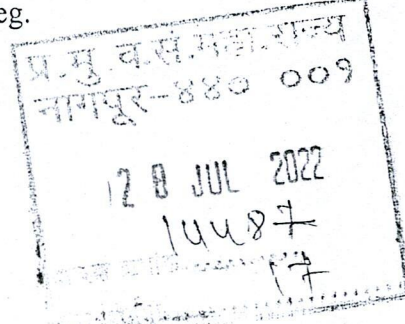 eg.
प्र.मु.व.सं.महा.राज्य
नागपूर-४४० ००१
28 JUL 2022
14487
17